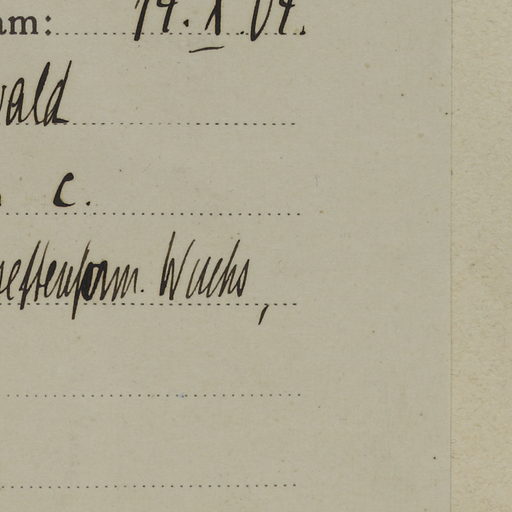 am: 14. X. 04.
wald
c.
Wuchs,